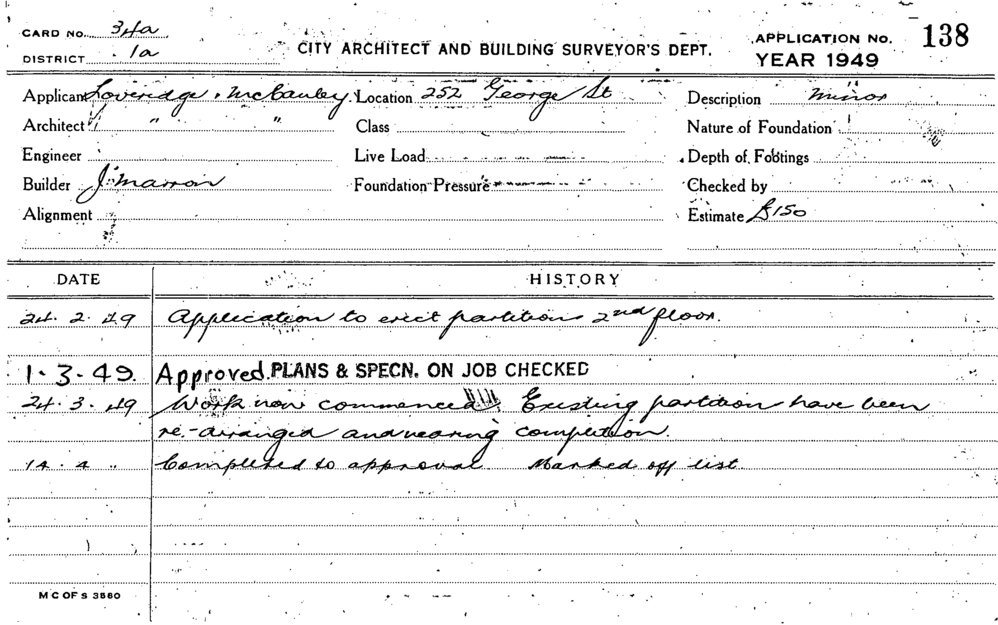 CARD NO. 34a
DISTRICT 1a
CITY ARCHITECT AND BUILDING SURVEYOR'S DEPT.
APPLICATION NO. 138
YEAR 1949
Applicant Loveridge & McCauley Location 252 George St Description Minor
Architect " " " Class Nature of Foundation
Engineer Live Load Depth of Footings
Builder J. Marron Foundation Pressure Checked by
Alignment Estimate £150
DATE HISTORY
24. 2. 49 Application to erect partitions 2nd floor.
1. 3. 49. Approved. PLANS & SPECN. ON JOB CHECKED
24. 3. 49 Work now commenced Existing partition have been
re-arranged and nearing completion.
14. 4 " Completed to approval Marked off list.
M C OF S 3560